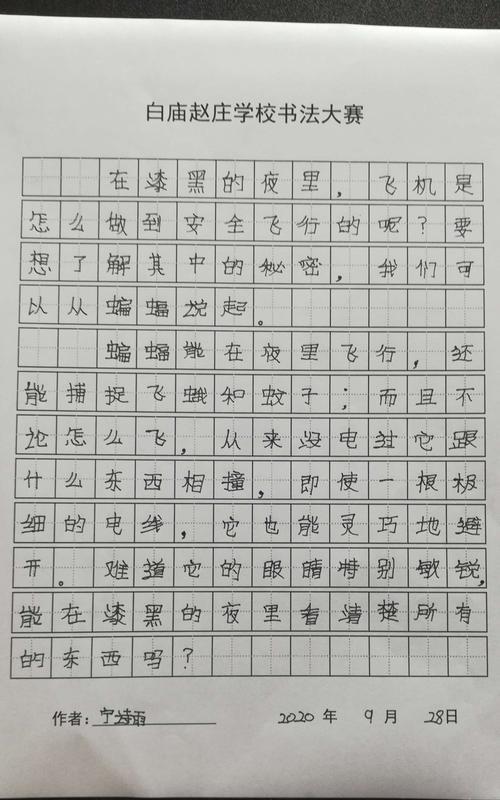 白庙赵庄学校书法大赛
在漆黑的夜里，飞机是
怎么做到安全飞行的呢？要
想了解其中的秘密，我们可
以从蝙蝠说起。
蝙蝠能在夜里飞行，还
能捕捉飞蛾和蚊子；而且不
论怎么飞，从来没电过它跟
什么东西相撞，即使一根极
细的电线，它也能灵巧地避
开。难道它的眼睛特别敏锐，
能在漆黑的夜里看清楚所有
的东西吗？
作者：宁诗雨 2020 年 9 月 28日